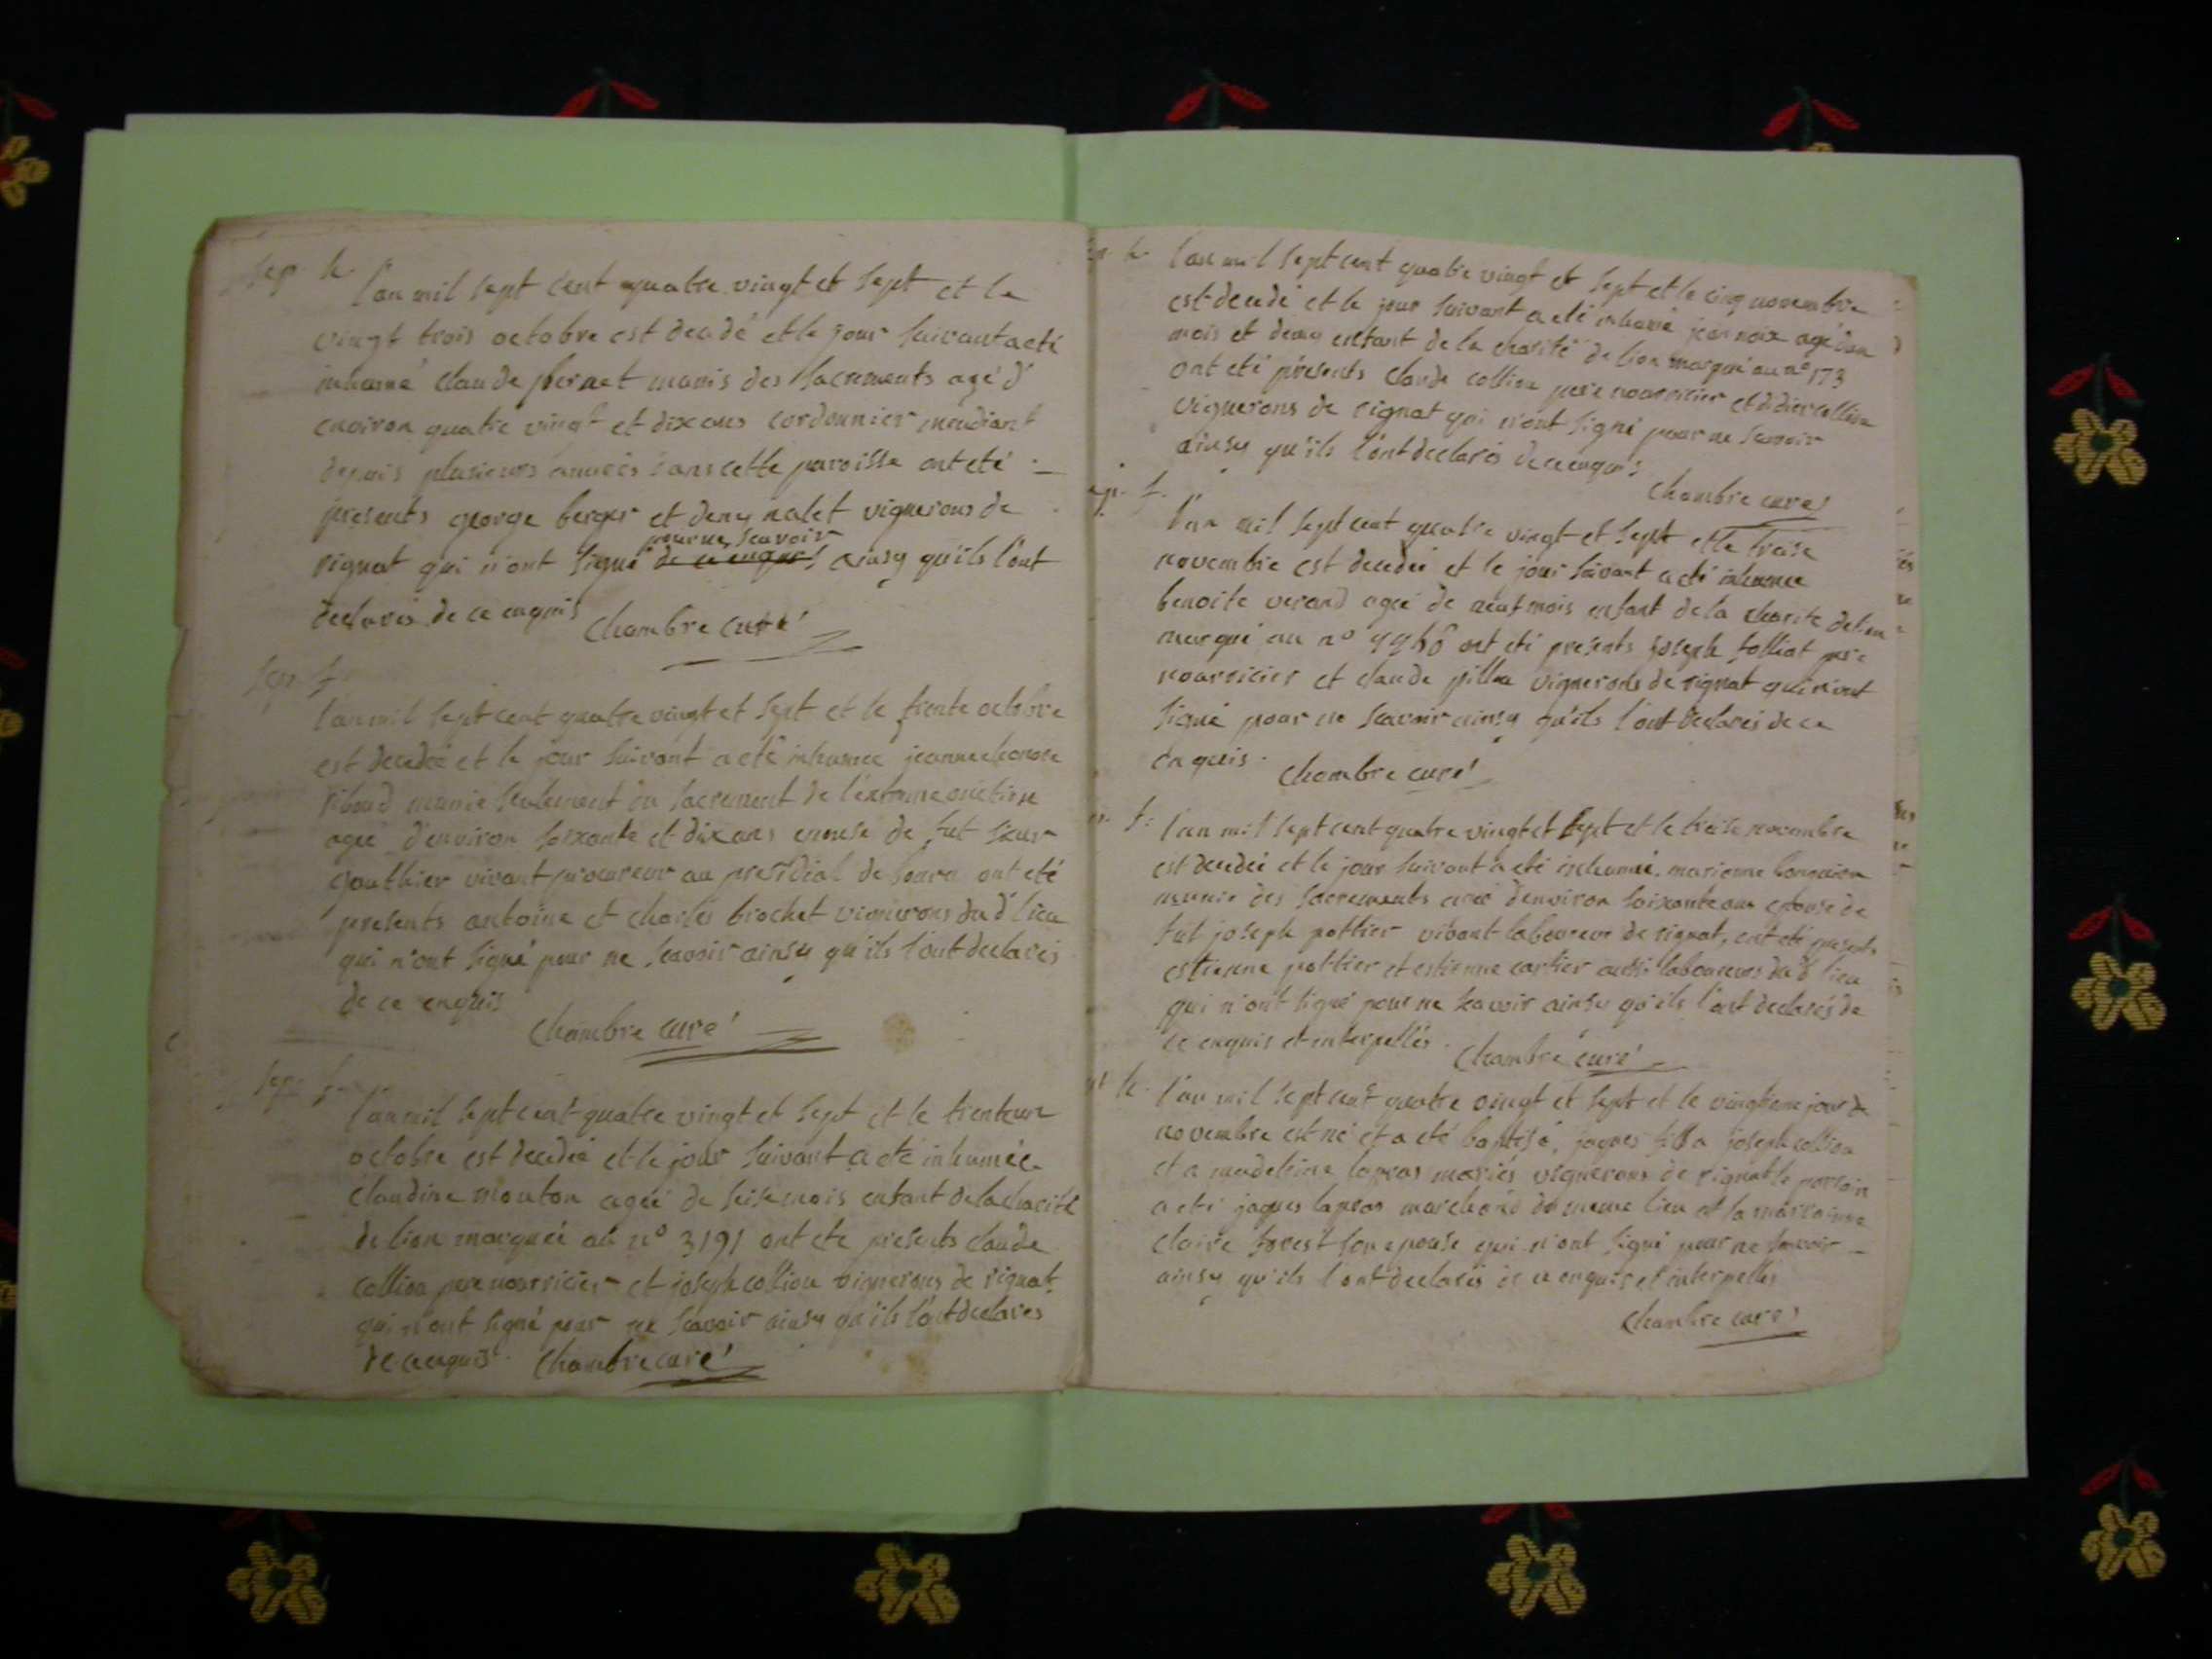 sep. h.
l'an mil sept cent quatre vingt et sept et le
vingt trois octobre est decedé et le jour suivant a eté
inhumé claude pernet munis des sacrements agé d'
environ quatre vingt et dix ans cordonnier mendiant
depuis plusieurs années dans cette paroisse ont eté
presents george berger et deny nalet vignerons de
pour ne scavoir
rignat qui n'ont signé de ce enquis ainsy qu'ils l'ont
declarés de ce enquis chambre curé
sep. f.
l'an mil sept cent quatre vingt et sept et le trente octobre
est decedée et le jour suivant a eté inhumée jeanne
riboud munie seulement du sacrement de l'extreme onction
agée d'environ soixante et dix ans epouse de fut sieur
gouthier vivant procureur au presidial de bourg ont eté
presents antoine et charles brochet vignerons du d lieu
qui n'ont signé pour ne scavoir ainsy qu'ils l'ont declarés
de ce enquis
chambre curé
sep. f.
l'an mil sept cent quatre vingt et sept et le trenteun
octobre est decedée et le jour suivant a eté inhumée
claudine mouton agée de seise mois enfant de la charité
de lion marquée au n° 3191 ont eté presents claude
collion pere nourricier et joseph collion vignerons de rignat
qui n'ont signé pour ne scavoir ainsy qu'ils l'ont declarés
de ce enquis. chambre curé
h. l'an mil sept cent quatre vingt et sept et le cinq novembre
est decedé et le jour suivant a eté inhumé jean noix agé d'un
mois et demy enfant de la charité de lion marqué au n° 173
ont eté présents claude collion pere nourricier et didier collion
vignerons de rignat qui n'ont signé pour ne scavoir
ainsy qu'ils l'ont declarés de ce enquis
chambre curé
f.
l'an mil sept cent quatre vingt et sept et le treise
novembre est decedée et le jour suivant a eté inhumée
benoite verand agée de neuf mois enfant de la charité de lion
marqué au n° ont eté presents joseph folliat pere
nourricier et claude pillon vignerons de rignat qui n'ont
signé pour ne scavoir ainsy qu'ils l'ont declarés de ce
enquis. chambre curé
f. l'an mil sept cent quatre vingt et sept et le treise novembre
est decedée et le jour suivant a eté inhumée. marianne
munie des sacrements agée d'environ soixante ans epouse de
fut joseph pottier vivant laboureur de rignat, ont eté presents
estienne pottier et estienne cartier aussi laboureurs du d lieu
qui n'ont signé pour ne scavoir ainsy qu'ils l'ont declarés de
ce enquis et interpellés. chambre curé
h. l'an mil sept cent quatre vingt et sept et le vingtieme jour de
novembre est né et a eté baptisé, jaques fils a joseph collion
et a madeleine lapras mariés vignerons de rignat le parrain
a eté jaques lapras marchand du meme lieu et la marrainne
claire forest son epouse qui n'ont signé pour ne scavoir
ainsy qu'ils l'ont declarés de ce enquis et interpellés
chambre curé